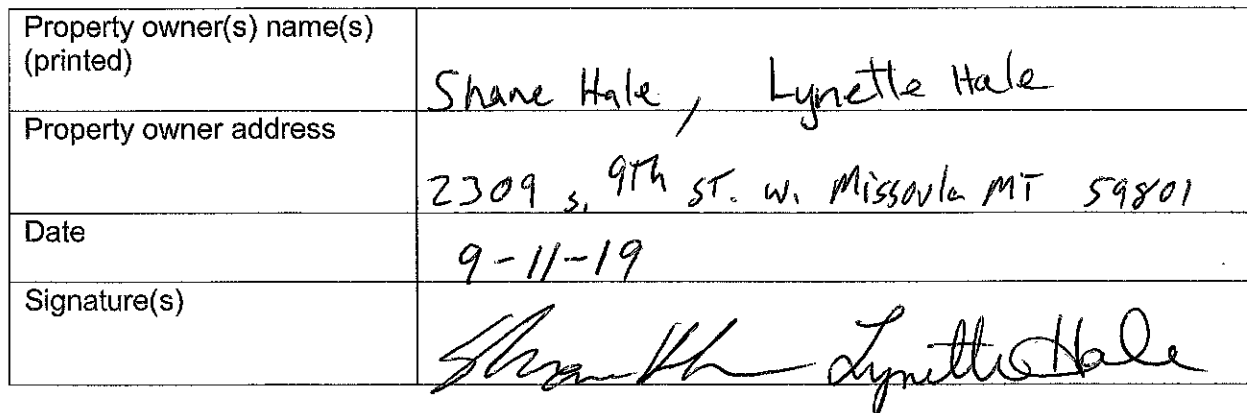 Property owner(s) name(s)
(printed)
Shane Hale, Lynette Hale
Property owner address
2309 s. 9Th sT. w. Missoula MT 59801
Date
9-11-19
Signature(s)
Shane Hale Lynette Hale